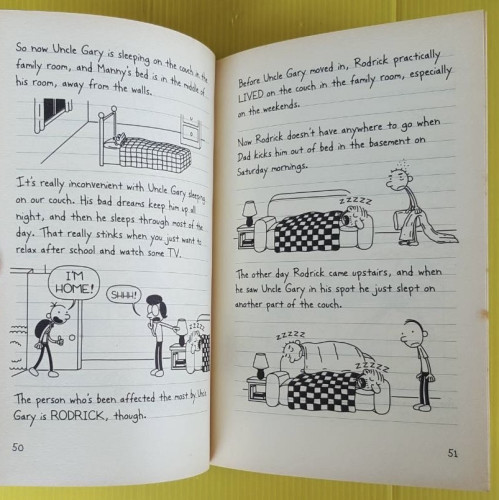 So now Uncle Gary is sleeping on the couch in the
family room, and Manny's bed is in the middle of
his room, away from the walls.
It's really inconvenient with Uncle Gary sleeping
on our couch. His bad dreams keep him up all
night, and then he sleeps through most of the
day. That really stinks when you just want to
relax after school and watch some TV.
I'M
HOME!
SHHH!
The person who's been affected the most by Uncle
Gary is RODRICK, though.
50
Before Uncle Gary moved in, Rodrick practically
LIVED on the couch in the family room, especially
on the weekends.
Now Rodrick doesn't have anywhere to go when
Dad kicks him out of bed in the basement on
Saturday mornings.
ZZZZ
The other day Rodrick came upstairs, and when
he saw Uncle Gary in his spot he just slept on
another part of the couch.
ZZZZ
ZZZZ
51